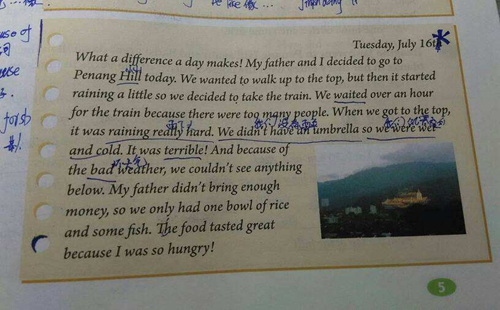 Tuesday, July 16th
What a difference a day makes! My father and I decided to go to
Penang Hill today. We wanted to walk up to the top, but then it started
raining a little so we decided to take the train. We waited over an hour
for the train because there were too many people. When we got to the top,
it was raining really hard. We didn't have an umbrella so we were wet
and cold. It was terrible! And because of
the bad weather, we couldn't see anything
below. My father didn't bring enough
money, so we only had one bowl of rice
and some fish. The food tasted great
because I was so hungry!
5